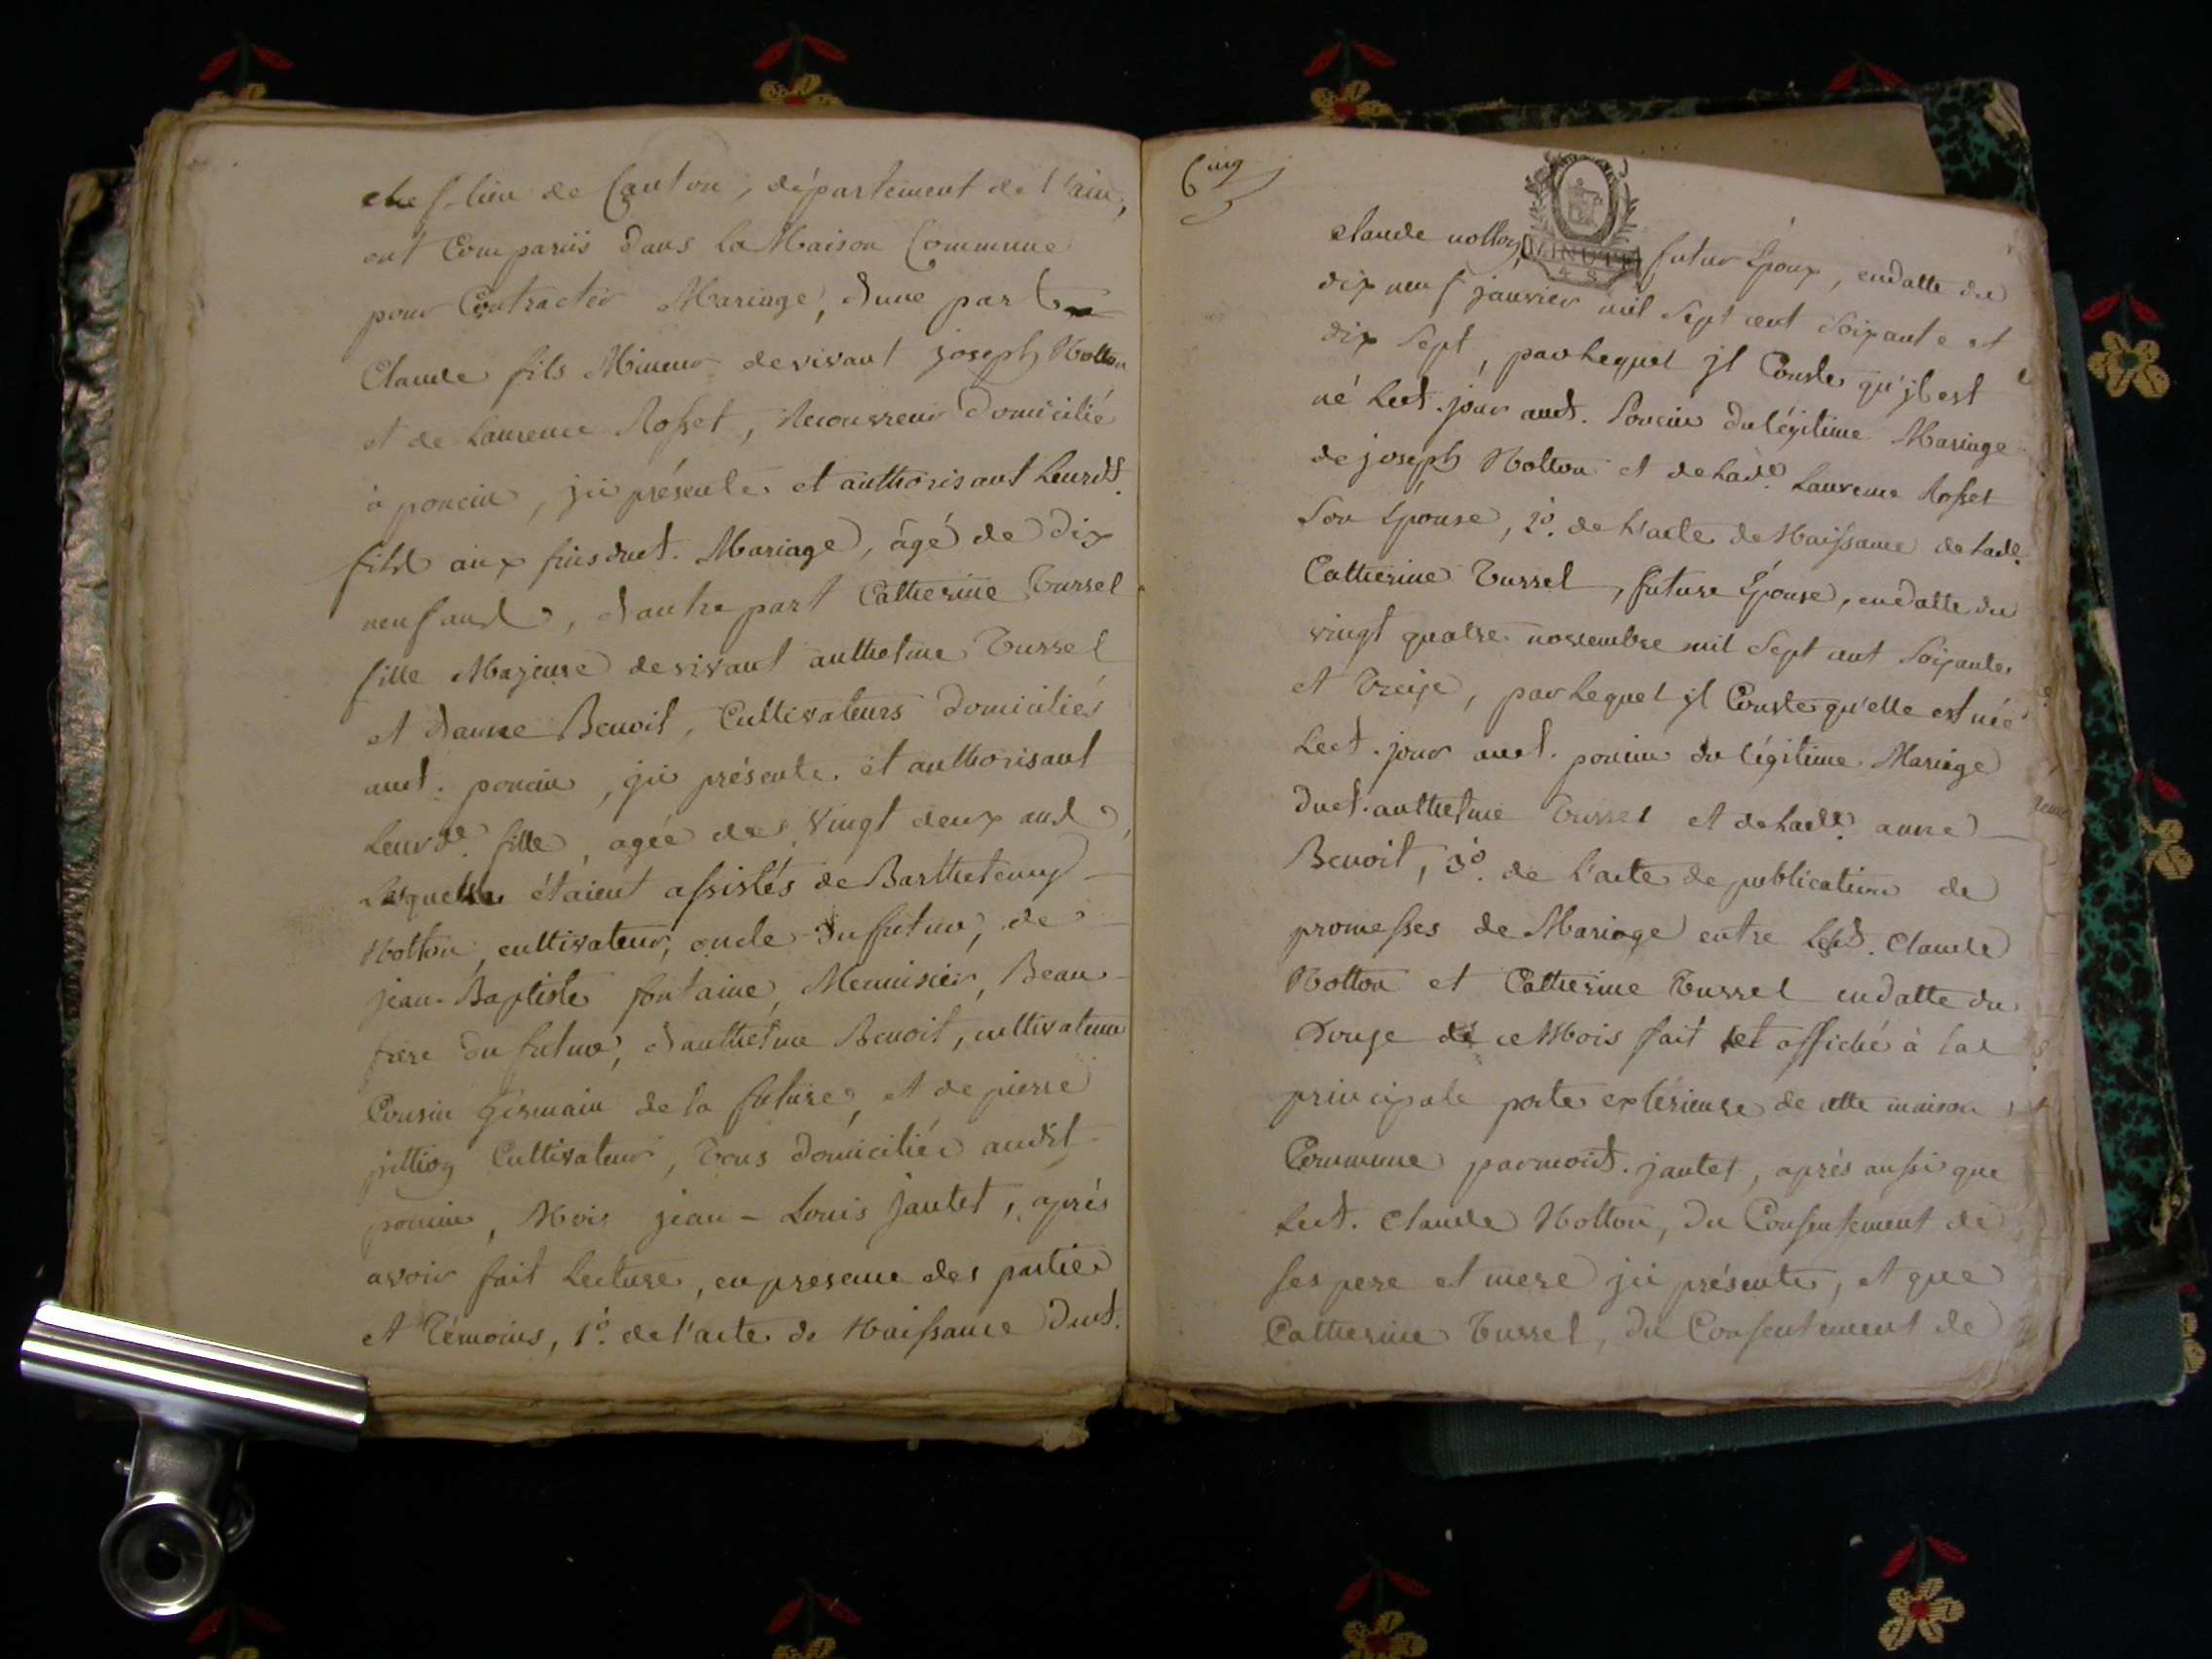 chef-lieu de Canton, département de l'ain,
ont Comparüs dans la Maison Commune
pour Contracter Mariage, dune part
Claude fils Mineur devivant joseph Notton
et de Laurence Rosset, Recouvreur Domicilié
à poncin, jci présents et authorisant Leurdt.
fils aux fins dudt. Mariage, âgé de dix
neuf ans, dautre part Catherine Tussel
fille Majeure devivant anthelme Tussel
et danne Benoit, Cultivateurs Domiciliés
audt. poncin, jci présents et authorisant
Leurde. fille, agée de vingt deux ans,
Lesquels étaient assistés de Barthelemy
Notton, cultivateur, oncle du futur, de
jean-Baptiste fontaine, Menuisier, Beau-
frere du futur, danthelme Benoit, cultivateur
Cousin Germain de la future, et de pierre
Cultivateur, Tous domiciliés audit
poncin, Moi jean-Louis jantet, après
avoir fait Lecture, en presence des parties
et Témoins, 1o. de l'acte de Naissance dudt.
Cinq
MINUTE
claude notton, futur Epoux, endatte du
dix neuf janvier mil Sept cent Soixante et
dix Sept, par Lequel jl Conste qu'jl est
né Ledt. jour audt. Poncin du légitime Mariage
de joseph Notton et de Lade. Laurence Rosset
Son Epouse, 2o. de l'acte de Naissance de Lade.
Catherine Tussel, future Epouse, endatte du
vingt quatre novembre mil Sept cent Soixante
et Treize, par Lequel jl Conste qu'elle est née
Ledt. jour audt. poncin du légitime Mariage
dudt. anthelme Tussel et de Lade. anne
Benoit, 3o. de l'acte de publication de
promesses de Mariage entre Lesd. Claude
Notton et Catherine Tussel endatte du
Douze de ce Mois fait et affiché à la
principale porte extérieure de cette maison
Commune par moidt. jantet, après aussi que
Ledt. Claude Notton, du Consentement de
ses pere et mere jci présents, et que
Catherine Tussel, du Consentement de